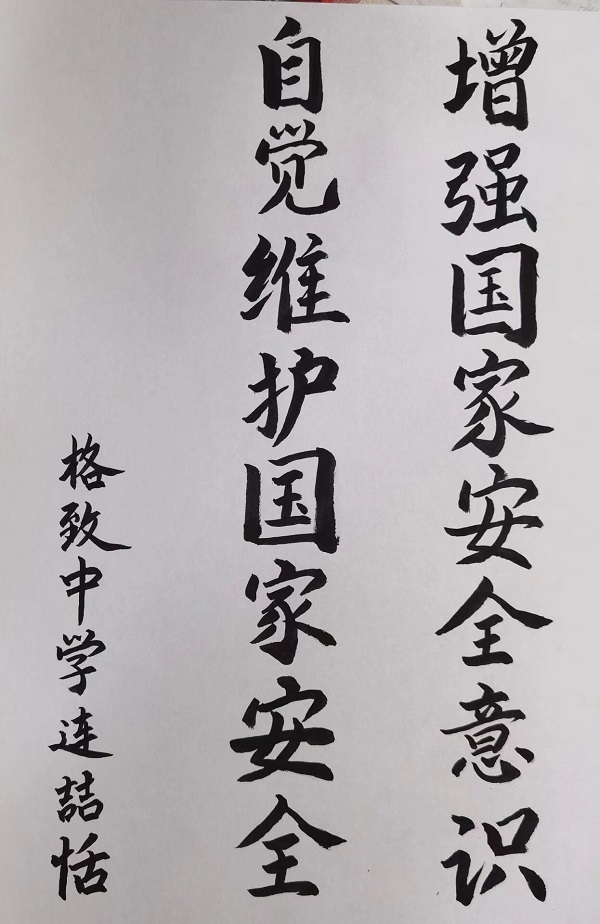 增强国家安全意识
自觉维护国家安全
格致中学连喆恬